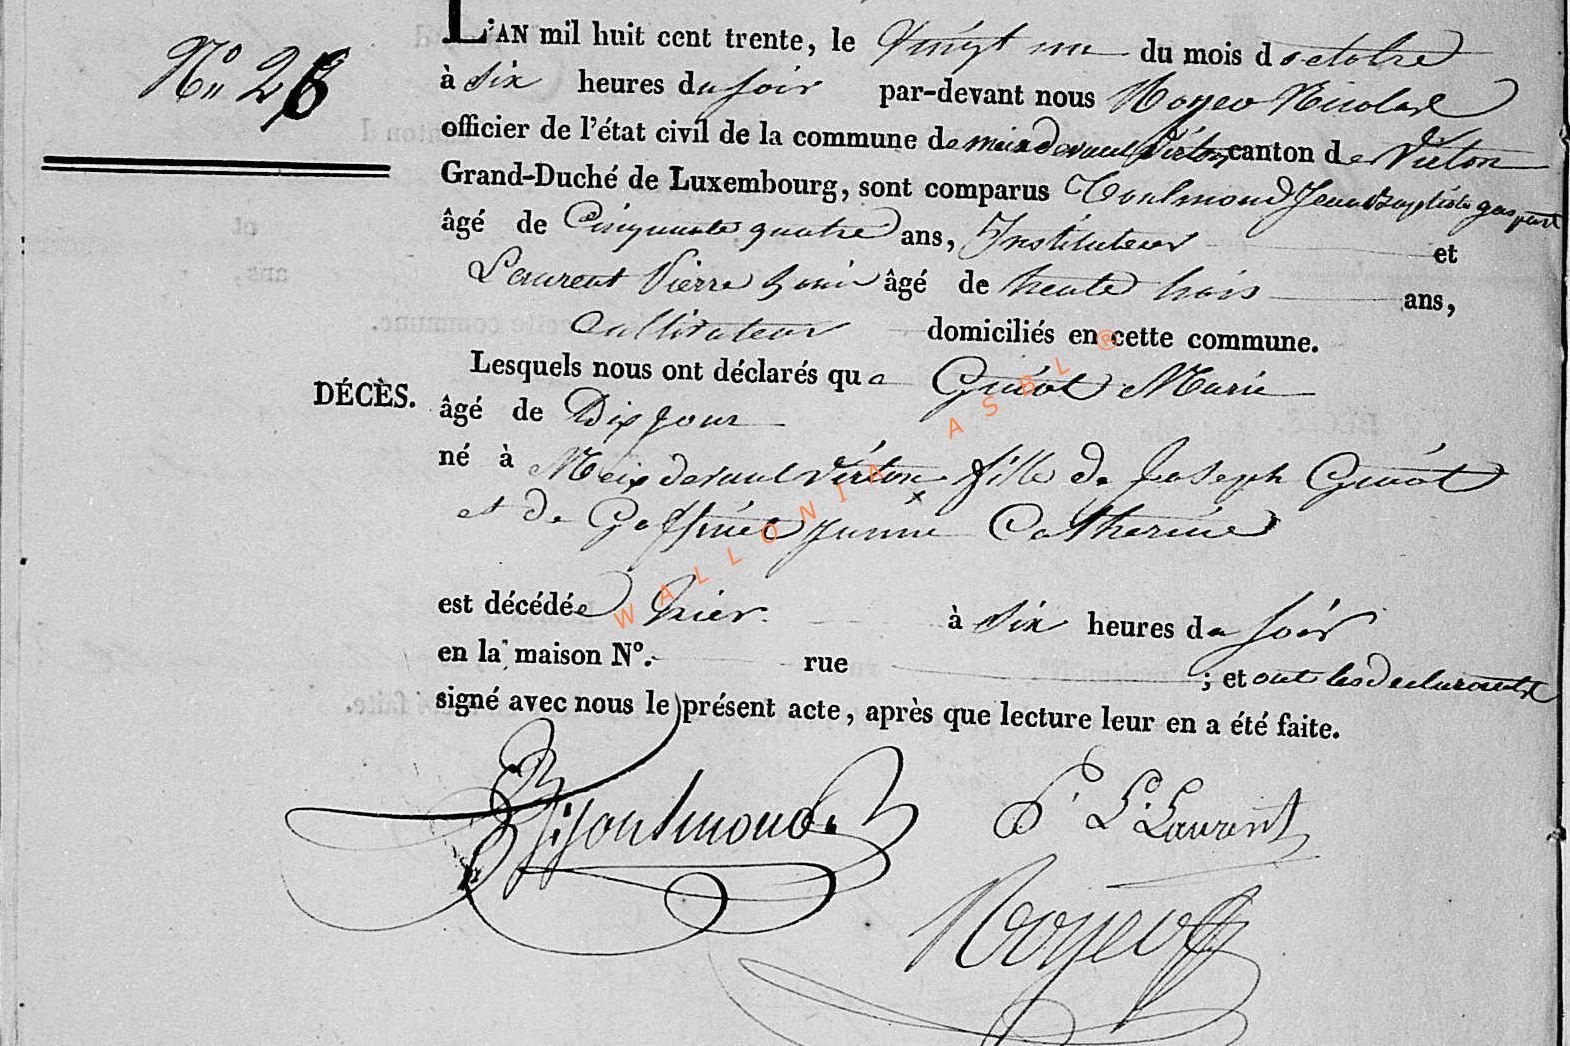 L'AN mil huit cent trente, le Vingt un du mois d octobre
N° 26
à Six heures du soir par-devant nous Nicolas
officier de l'état civil de la commune de meix devant Virton canton de Virton
Grand-Duché de Luxembourg, sont comparus Toulmond Jean Baptiste gaspart
âgé de Cinquante quatre ans, Instituteur et
Laurent Pierre âgé de trente trois ans,
Cultivateur domiciliés en cette commune.
Lesquels nous ont déclarés que Guiot Marie
DÉCÈS.
âgé de Dix jour
né à Meix devant Virton fille de Joseph Guiot
et de Goffinet Catherine
est décédée hier à Six heures du soir
en la maison N°. rue ; et ont les declarants
signé avec nous le présent acte, après que lecture leur en a été faite.
Toulmond P. L. Laurent
WALLONIA ASBL ®